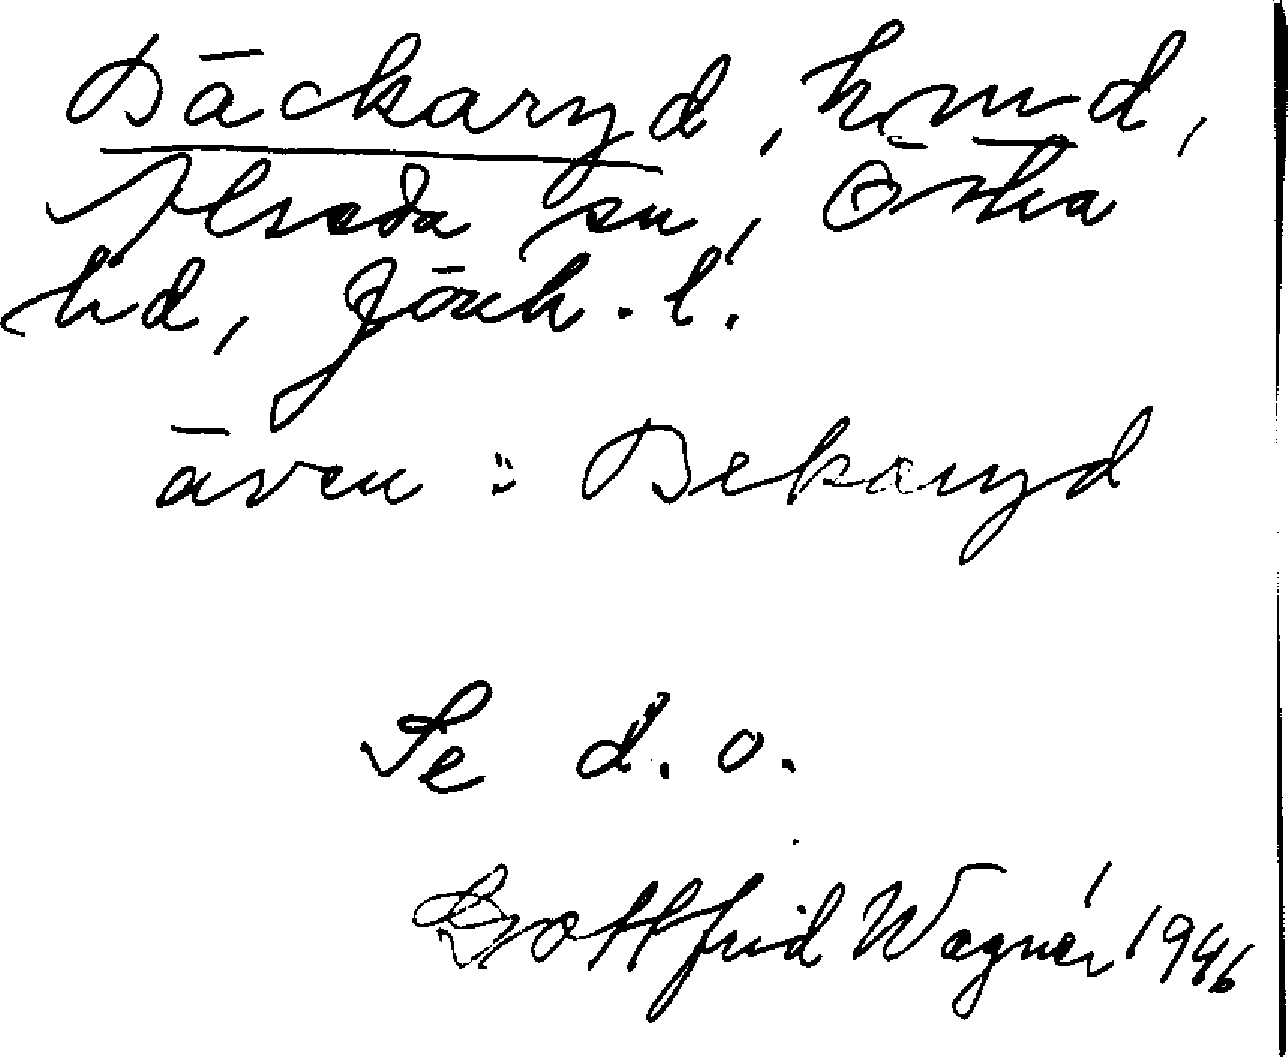 Bäckaryd, hmd,
Alseda sn, Östra
hd, Jönk. l.
även: Bekaryd
Se d. o.
Gottfrid Wagnér 1946